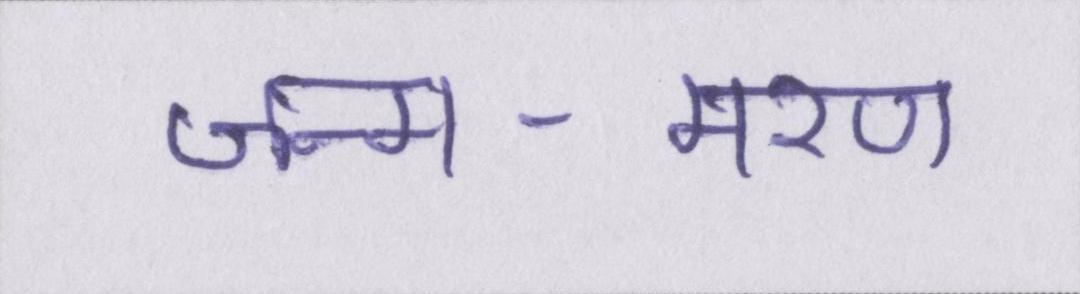 जन्म - मरण